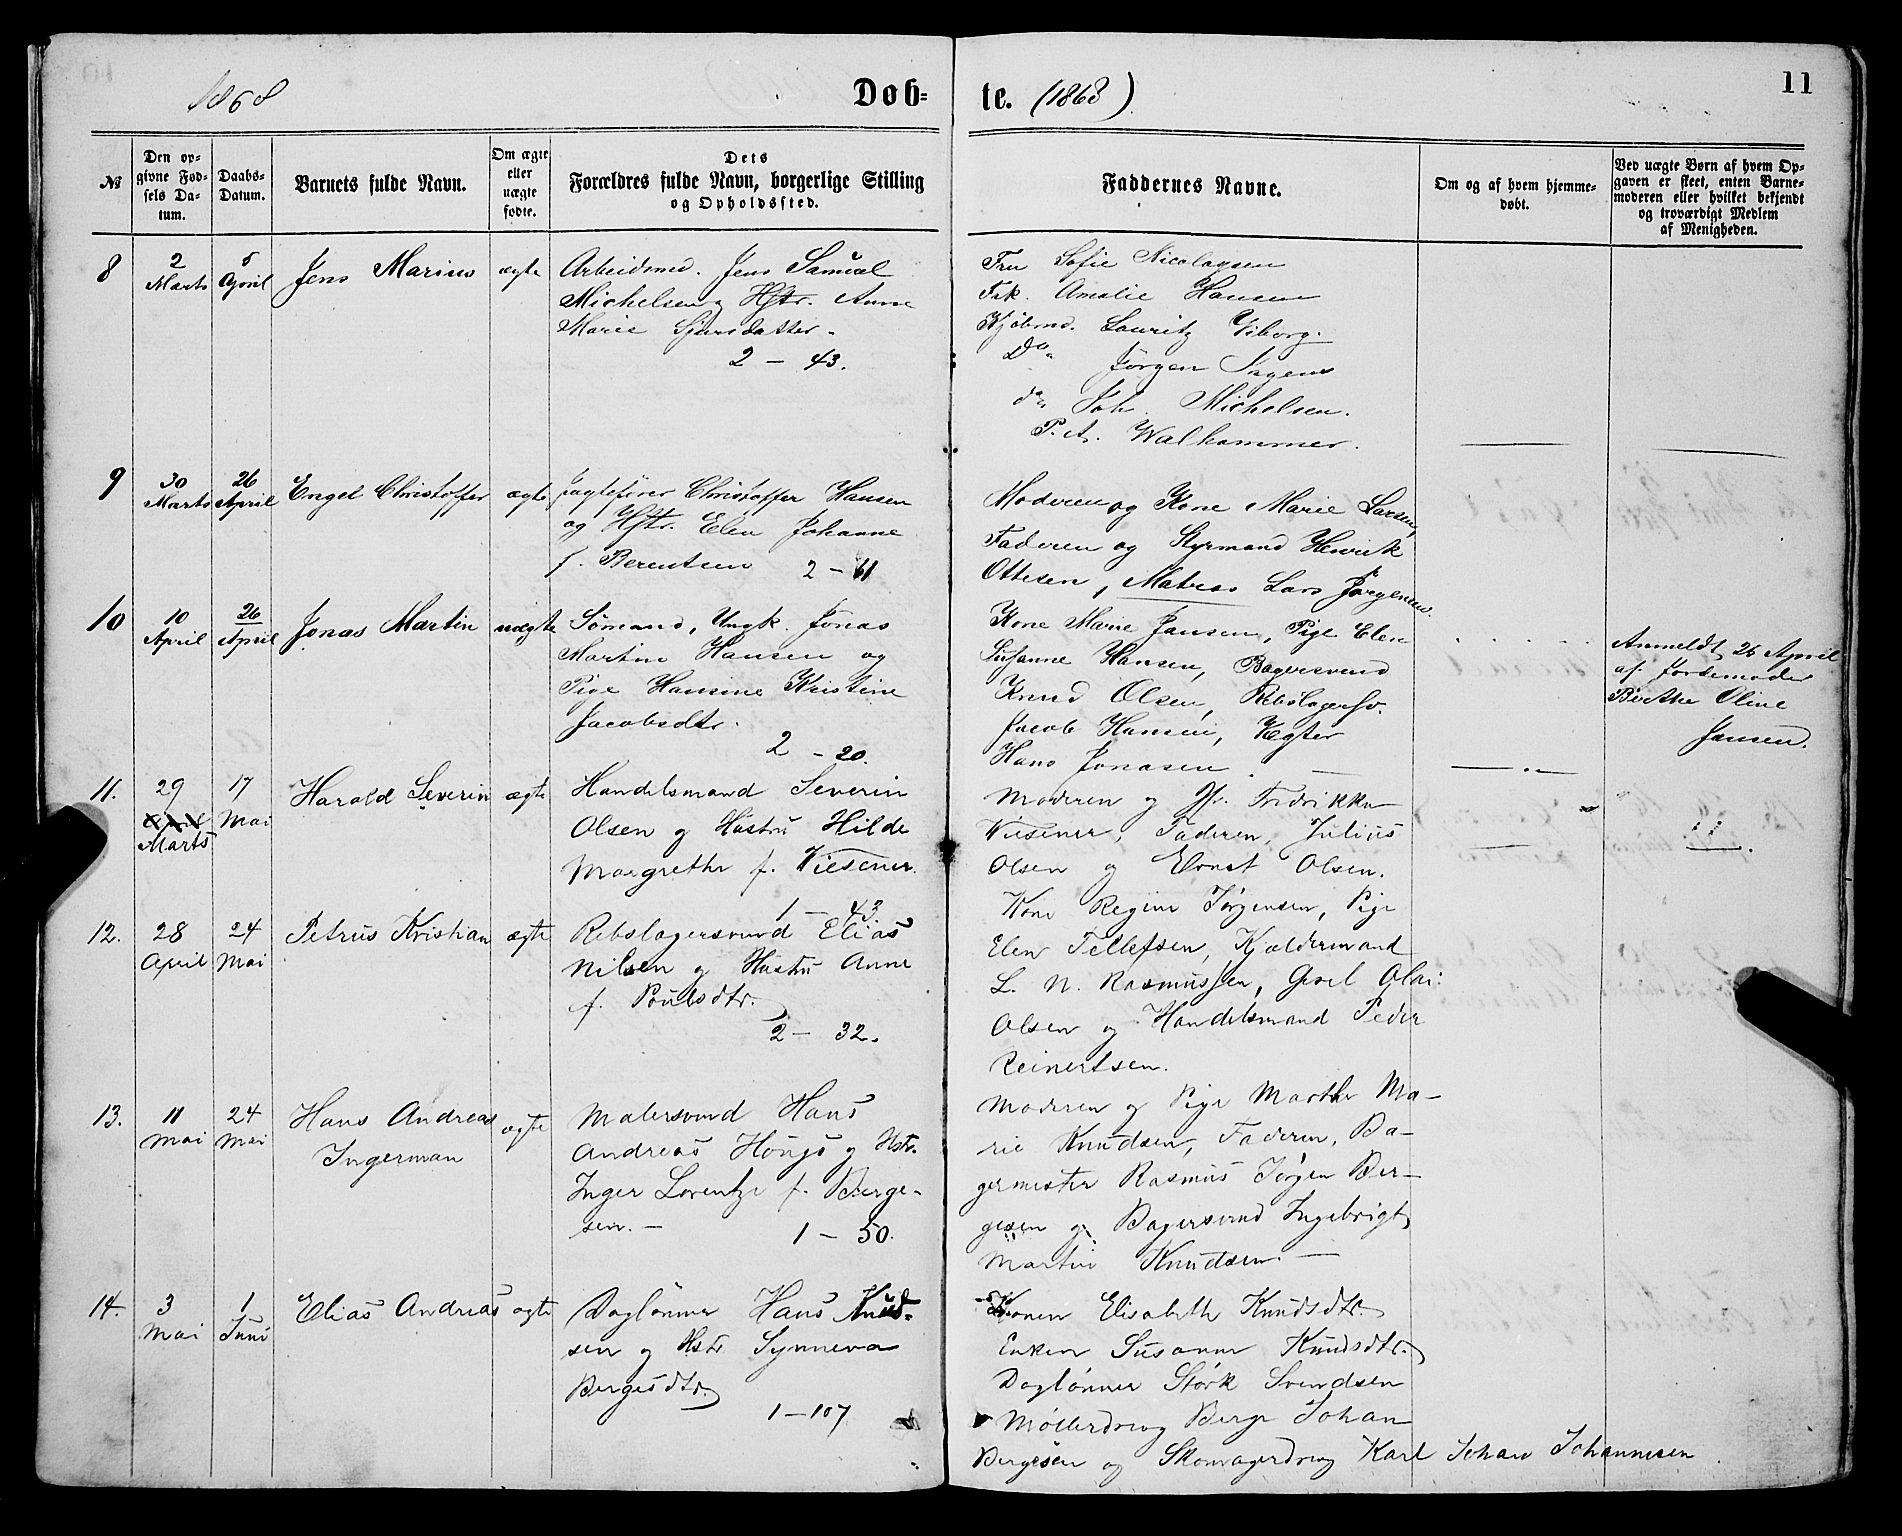 1868
Døb-
te. (1868)
11
№
Den op-
givne Fød-
sels Da-
tum.
Daabs-
Datum.
Barnets fulde Navn.
Om ægte
eller
uægte
fødte.
Dets
Forældres fulde Navn, borgerlige Stilling
og Opholdssted.
Faddernes Navne.
Om og af hvem hjemme-
døbt.
Ved uægte Børn af hvem Op-
gaven er skeet, enten Barne-
moderen eller hvilket bekjendt
og troværdigt Medlem
af Menigheden.
8
2
Marts
5
April
Jens Marius
ægte
Arbeidsmd. Jens Samuel
Michelsen og Hstr. Anne
Marie Sjursdatter.
2 - 43.
Fru Sofie Nicolaysen
Frk. Amalie Hansen
Kjøbmd. Lauritz Viborg.
Do. Jörgen
do. Joh. Michelsen.
P. A. Walhammer.
9
30
Marts
26
April
Engel Christoffer
ægte
Jagtefører Christoffer Hansen
og Hstr. Elen Johanne
f. Berentsen 2 - 61
Moderen og Kone Marie Larsen,
Faderen og Styrmand Henrik
Ottesen, Matros Lars Jørgensen.
10
10
April
26
April
Jonas Martin
uægte
Sömand, Ungk. Jonas
Martin Hansen og
Pige Hansine Kristine
Jacobsdtr.
2 - 20.
Kone Marie Jansen, Pige Elen
Susanne Hansen, Bagersvend
Knud Olsen, Rebslagersv.
Jacob Hansen,
Hans Jonasen.
Anmeldt 26 April
af Jordemoder
Birthe Oline
Jansen.
11.
29
April
Marts
17
Mai
Harald Severin
ægte
Handelsmand Severin
Olsen og Hustru Hilde
Margrethe f. Wiesener.
1 - 43.
Moderen og Jfr. Fredrikke
Wiesener, Faderen, Julius
Olsen og Ernst Olsen.
11.
12.
28
April
24
Mai
Petrus Kristian
ægte
Rebslagersvend Elias
Nilsen og Hustru Anne
f. Poulsdtr.
2 - 32.
Kone Regine Jørgensen, Pige
Elen Tellefsen, Kjældermand
L. N. Rasmussen, Olai
Olsen og Handelsmand Peder
Reinertsen.
13.
11
Mai
24
Mai
Hans Andreas
Ingerman
ægte
Malersvend Hans
Andreas Hougs og Hstr.
Inger Lorentze f. Berge-
sen. -
1 - 50.
Moderen og Pige Marthe Ma-
rie Knudsen, Faderen, Ba-
germester Rasmus Jørgen Ber-
gesen og Bagersvend Ingebrigt
Martin Knudsen. -
14.
3
Mai
1
Juni
Elias Andreas
ægte
Daglønner Hans Knud-
sen og Hstr. Synneva
Bergesdtr.
1 - 107
Konen Elisabeth Knudsdtr.
Enken Susanne Knudsdtr.
Daglønner Størk Svendsen
Møllerdreng Berge Johan
Bergesen og Skomagerdreng Karl Johan Johannesen